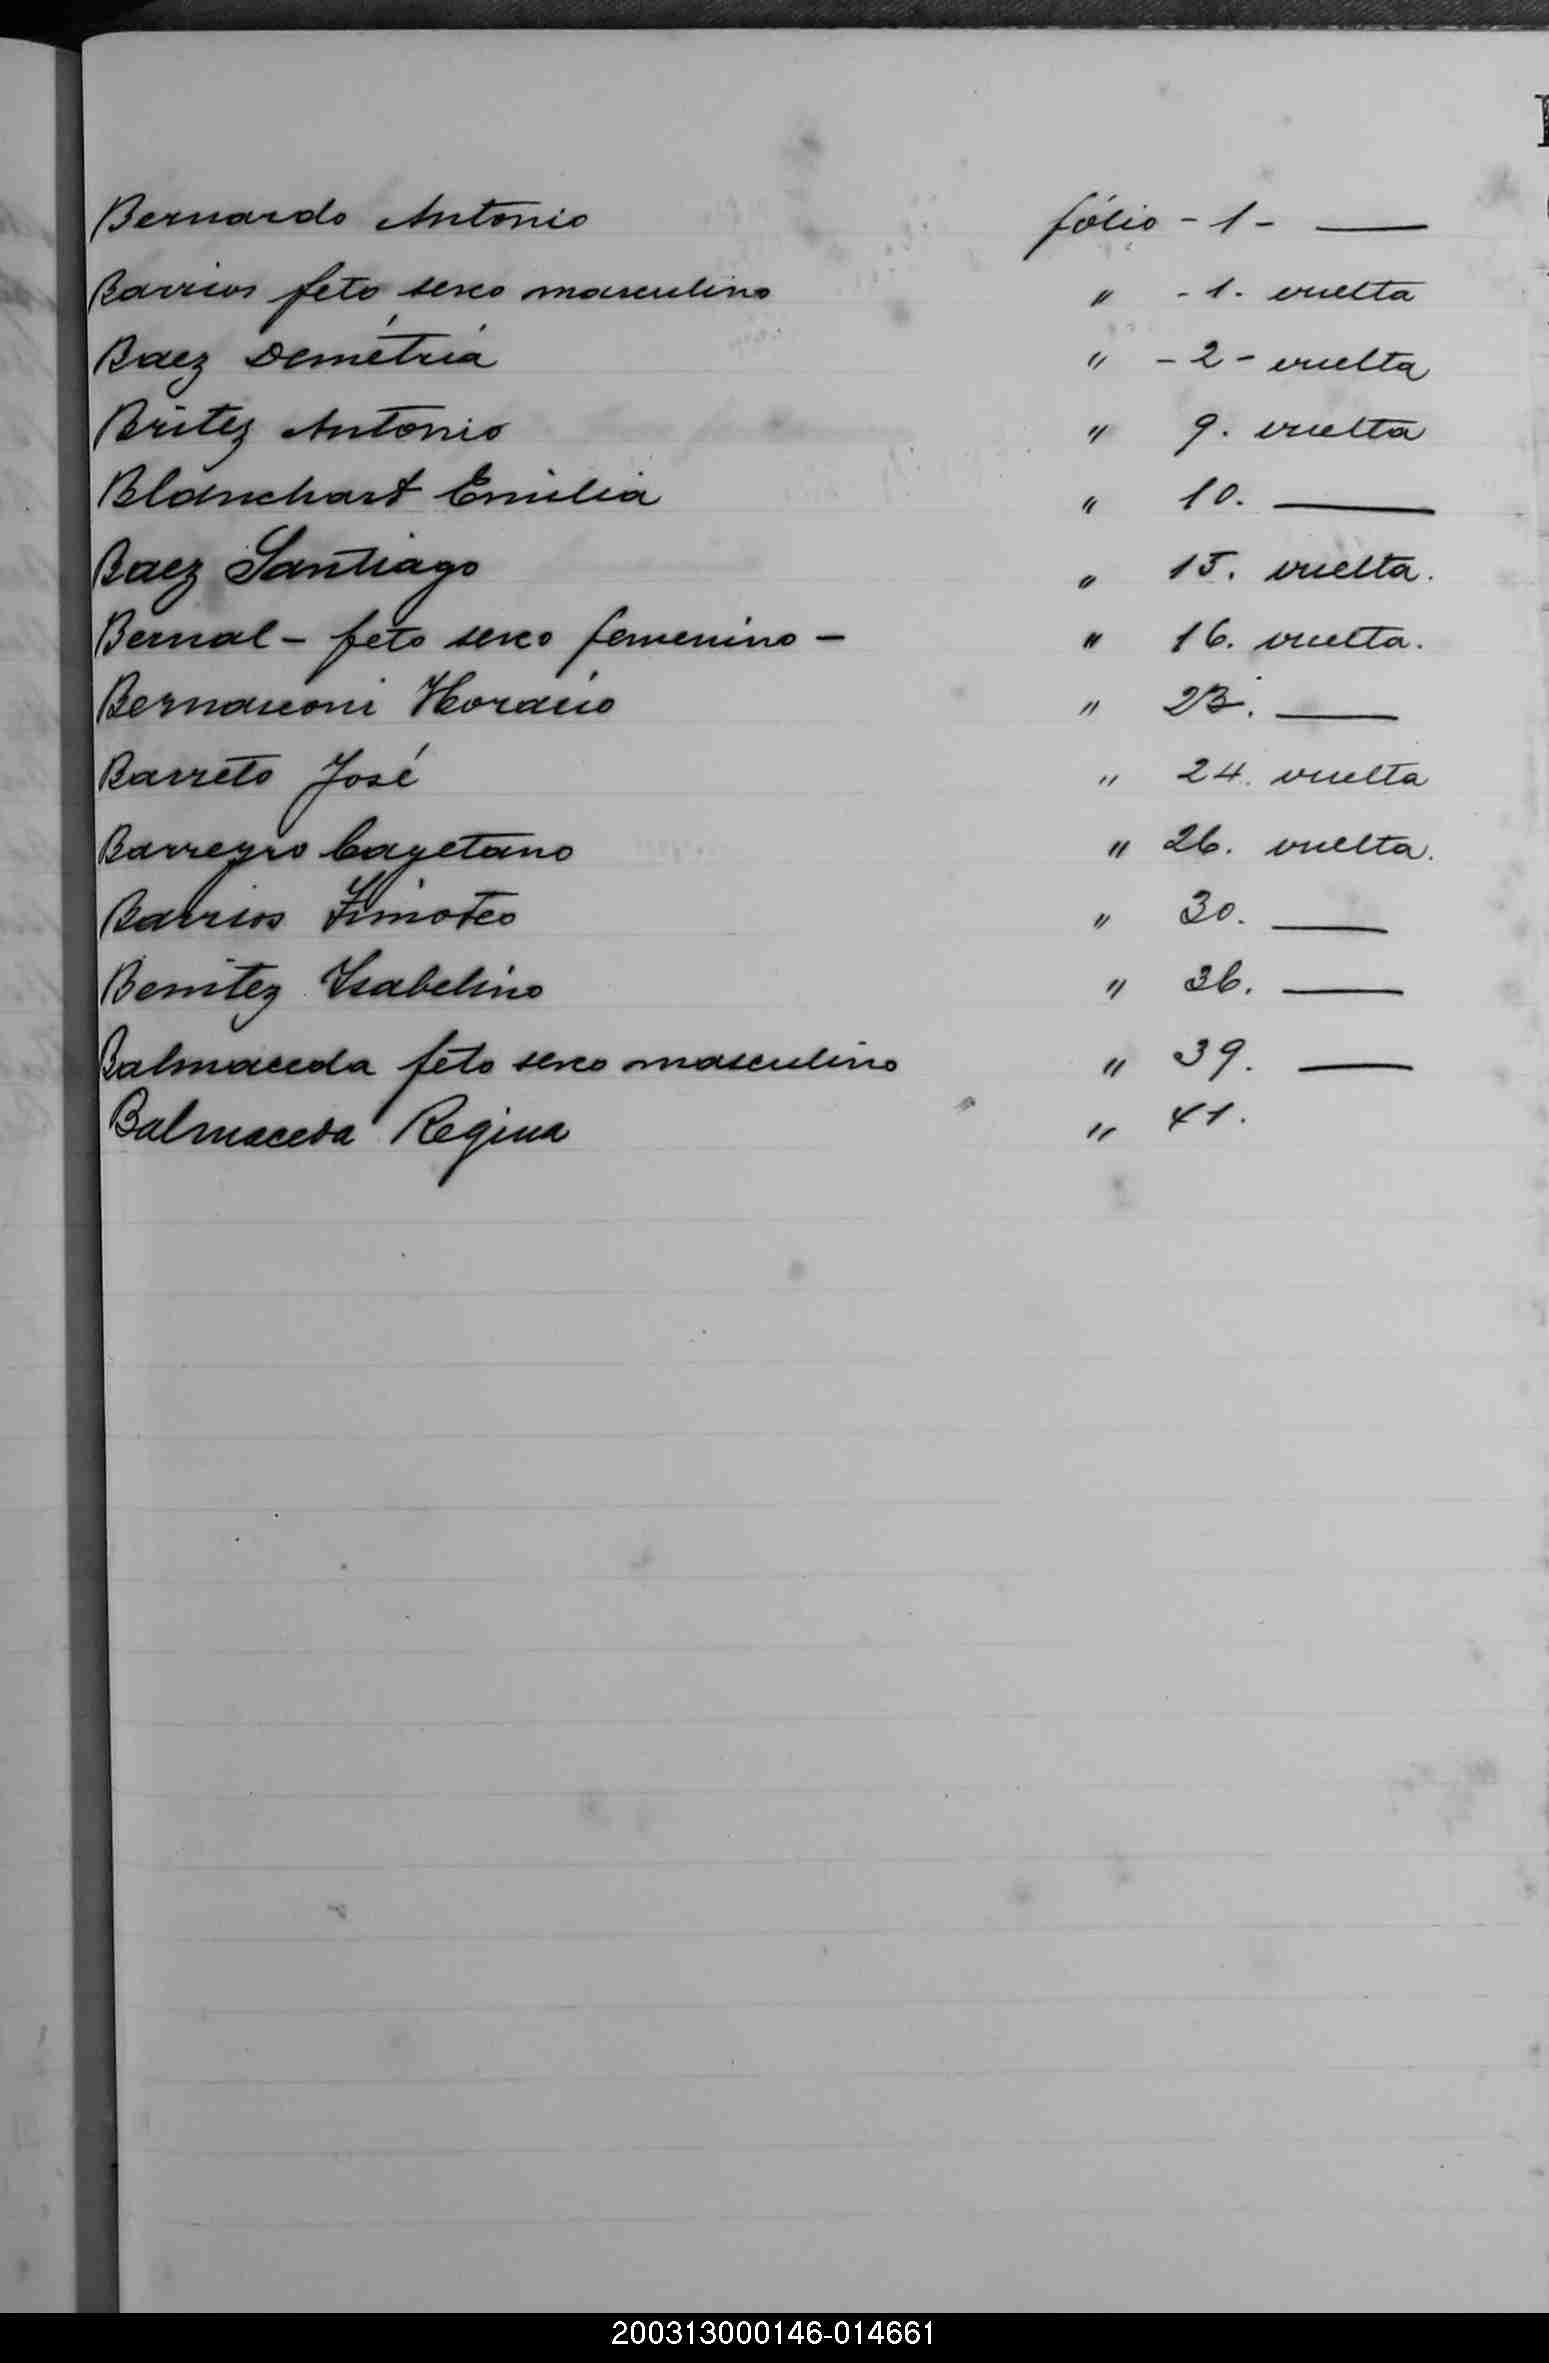 Bernardo Antonio fólio - 1 - ——
Barrios feto sexo masculino " - 1. vuelta
Baez Demétria " - 2 - vuelta
Britez Antonio " 9. vuelta
Blanchart Emilia " 10. ——
Baez Santiago " 15. vuelta.
Bernal - feto sexo femenino - " 16. vuelta.
Bernasconi Horacio " 23. ——
Barreto José " 24. vuelta
Barreyro Cayetano " 26. vuelta.
Barrios Timoteo " 30. ——
Benitez Isabelino " 36. ——
Balmaceda feto sexo masculino " 39. ——
Balmaceda Regina " 41.
200313000146-014661